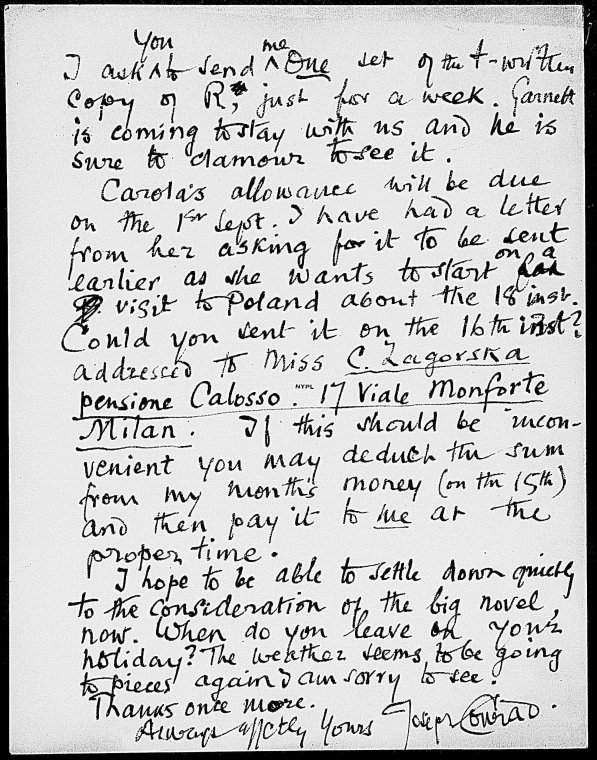 I ask you to send me One set of the t-written
copy of R, just for a week. Garnett
is coming to stay with us and he is
sure to clamour to see it.
Carola's allowance will be due
on the 1st Sept. I have had a letter
from her asking for it to be sent
earlier as she wants to start on a
visit to Poland about the 18 inst.
Could you sent it on the 16th inst?
addressed to Miss C. Zagorska
pensione Calosso. NYPL 17 Viale Monforte
Milan. If this should be incon-
venient you may deduct the sum
from my month's money (on the 15th)
and then pay it to me at the
proper time.
I hope to be able to settle down quietly
to the consideration of the big novel,
now. When do you leave on your
holiday? The weather seems to be going
to pieces again I am sorry to see.
Thanks once more.
Always affctly Yours Joseph Conrad.